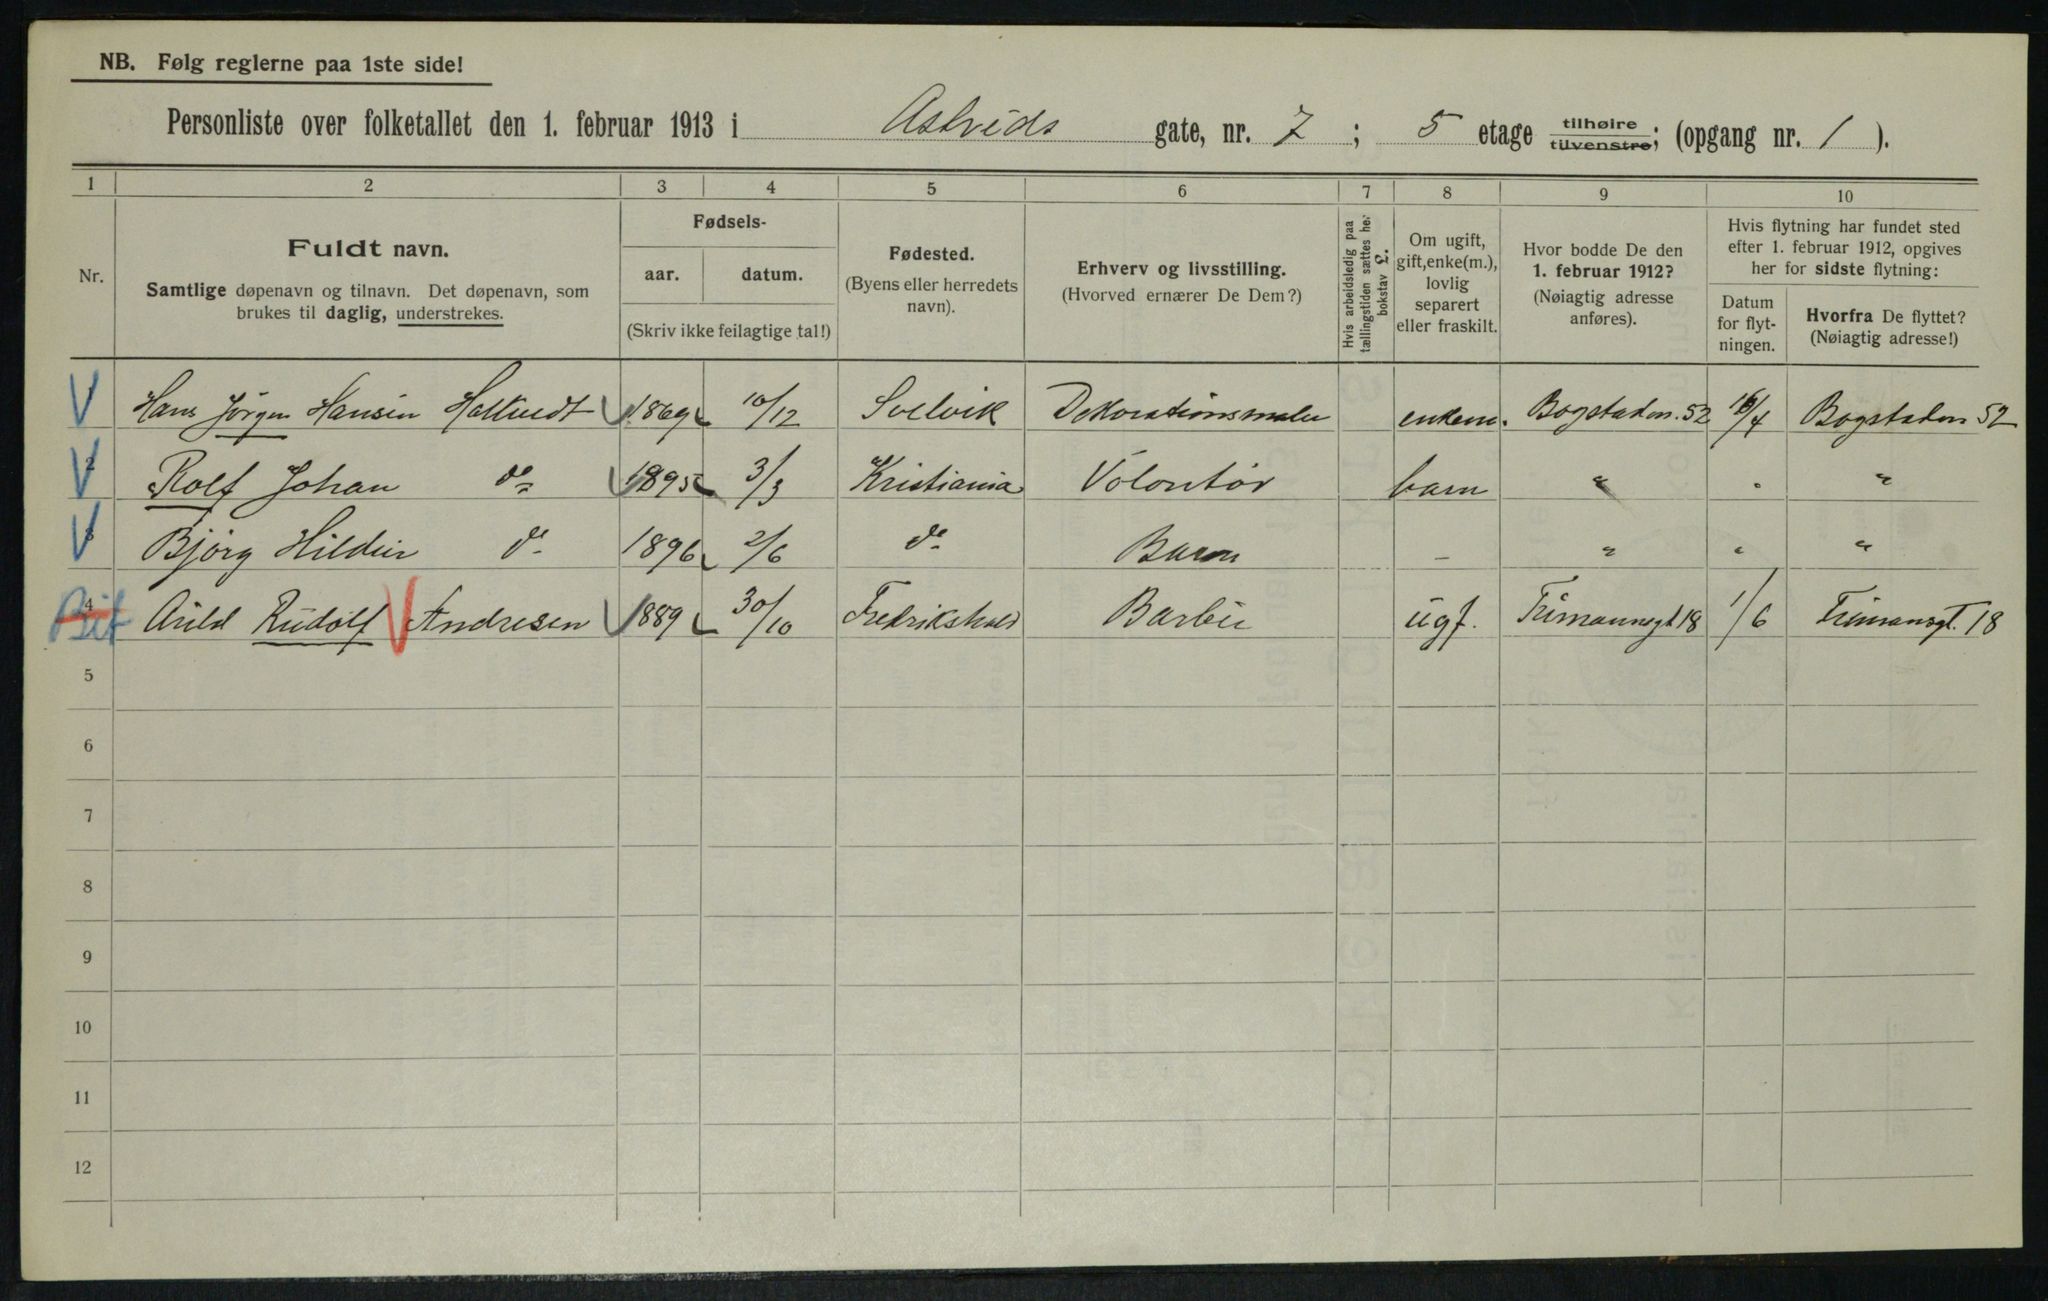 NB. Følg reglerne paa 1ste side!
Personliste over folketallet den 1. februar 1913 i Astrids gate, nr. 7 ; 5 etage tilhøire tilvenstre; (opgang nr. 1 ).
1 2 3 4 5 6 7 8 9 10
Nr.
Fuldt navn.
Samtlige døpenavn og tilnavn. Det døpenavn, som
brukes til daglig, understrekes.
Fødsels-
aar. datum.
(Skriv ikke feilagtige tal!)
Fødested.
(Byens eller herredets
navn).
Erhverv og livsstilling.
(Hvorved ernærer De Dem?)
Hvis arbeidsledig paa
tællingstiden sættes her
bokstav L.
Om ugift,
gift,enke(m.),
lovlig
separert
eller fraskilt.
Hvor bodde De den
1. februar 1912?
(Nøiagtig adresse
anføres).
Hvis flytning har fundet sted
efter 1. februar 1912, opgives
her for sidste flytning:
Datum
for flyt-
ningen.
Hvorfra De flyttet?
(Nøiagtig adresse!)
1 Hans Jörgen Hansen 1869 10/12 Svelvik Dekorationsmaler enkem. Bogstadvn. 52 16/4 Bogstadvn 52
2 Rolf Johan do 1895 3/3 Kristiania Volontör barn " " "
3 Bjørg Hildur do 1896 2/6 do Barn – " " "
4 Bif Arild Rudolf Andresen 1889 30/10 Fredrikshald Barber ugf. 18 1/6 18
5
6
7
8
9
10
11
12